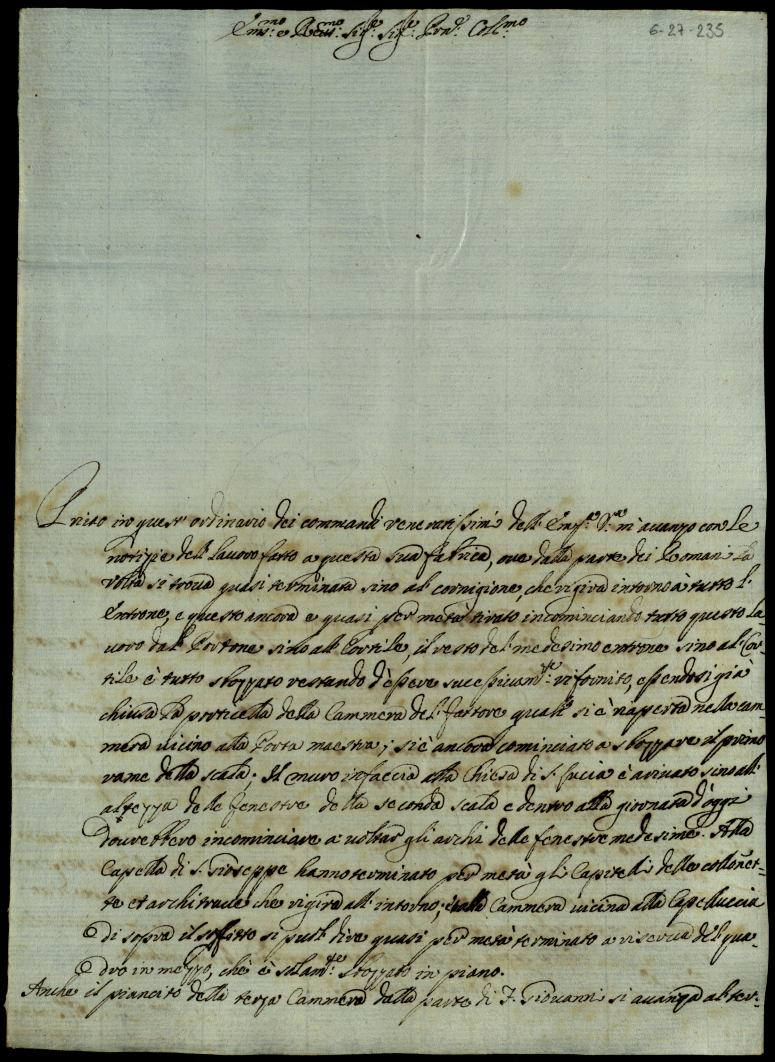 Em.mo e Rev.mo Sig.re Sig.re Pron. Coll.mo
6-27-235
Privo in quest' ordinario dei commandi veneratissimi dell' Em.za V.ra m'avanzo con le
notizie dell' lavoro fatto a questa sua fabrica, ove dalla parte dei Romani la
volta si trova quasi terminata sino al cornigione, che rigira intorno à tutto l'
entrone, e questo ancora e quasi per metà tirato incominciando tutto questo la-
voro dall' Portone sino all' Cortile, il resto del medesimo entrone sino al Cor-
tile è tutto sbozzato restando d'essere successivam.te rifornito, essendosi già
chiusa la porticella della Cammera del fattore quale si è riaperta nella cam-
mera vicino alla Porta maestra; si è ancora cominciato a sbozzare il primo
rame della scala. Il muro infaccia alla Chiesa di S. Lucia è arivato sino all'
altezza delle fenestre della seconda scala e dentro alla giornata d'oggi
dourebbero incominciare a voltar gli archi delle fenestre medesime. Alla
Capella di S. Gioseppe hanno terminato per metà gli Capitelli delle collonet-
te et architrave che rigira all' intorno; alla Cammera vicina alla Capelluccia
di sopra il soffitto si può dire quasi per metà terminato a riserva del qua-
dro in mezzo, che è solam.te sbozzato in piano.
Anche il piancito della terza Cammera dalla parte di S. Giovanni si avanza al ter-